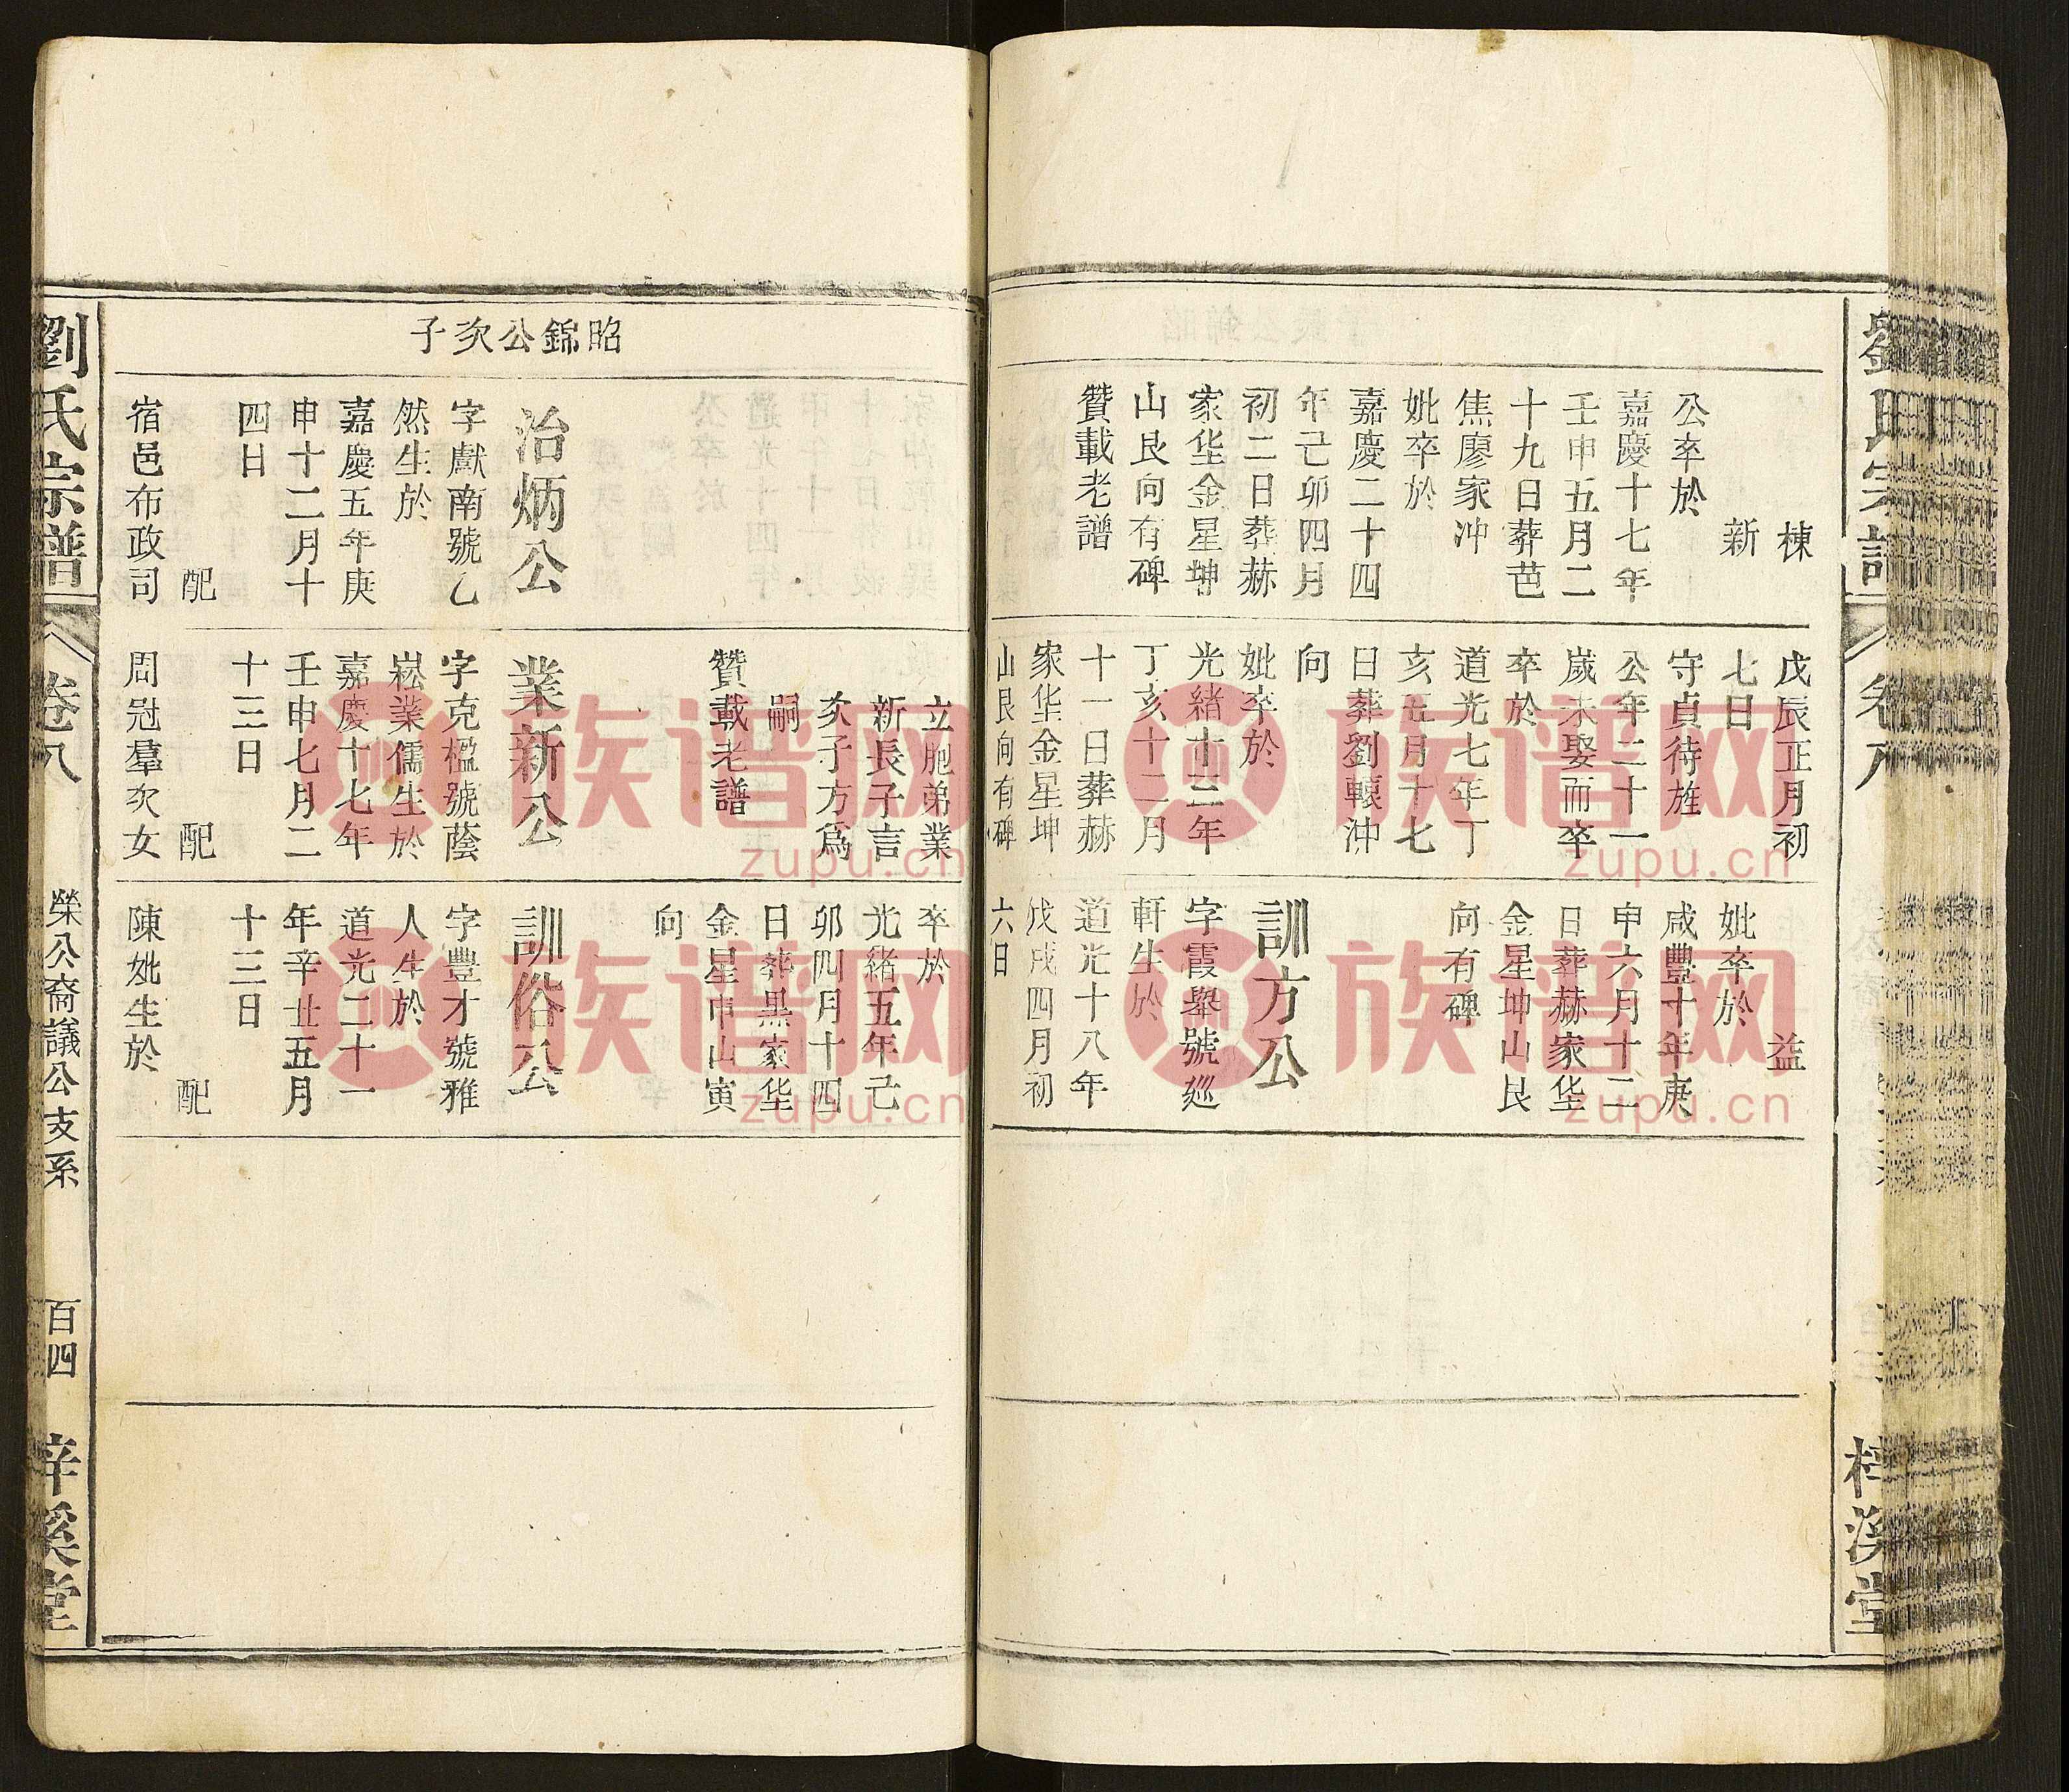 棟
新
公卒於
嘉慶十七年
壬申五月二
十九日葬芭
焦廖家冲
妣卒於
嘉慶二十四
年己卯四月
初二日葬赫
家垈金星坤
山艮向有碑
贊載老譜
戊辰正月初
七日
守貞待旌
公年二十一
歲未娶而卒
卒於
道光七年丁
亥五月十七
日葬劉轅沖
向
妣卒於
光緒十三年
丁亥十二月
十一日葬赫
家垈金星坤
山艮向有碑
益
妣卒於
咸豐十年庚
申六月十二
日葬赫家垈
金星坤山艮
向有碑
訓方公
字霞舉號巡
軒生於
道光十八年
戊戌四月初
六日
梓溪堂
昭錦公次子
治炳公
字獻南號乙
然生於
嘉慶五年庚
申十二月十
四日
配
宿邑布政司
立胞弟業
新長子言
次子方爲
嗣
贊載老譜
業新公
字克楹號蔭
崧業儒生於
嘉慶十七年
壬申七月二
十三日
配
周冠羣次女
卒於
光緒五年己
卯四月十四
日葬黑家垈
金星申山寅
向
訓俗公
字豐才號雅
人生於
道光二十一
年辛丑五月
十三日
配
陳妣生於
劉氏宗譜
卷八
榮公裔議公支系
百四
梓溪堂
族谱网
zupu.cn
族谱网
zupu.cn
族谱网
zupu.cn
族谱网
zupu.cn